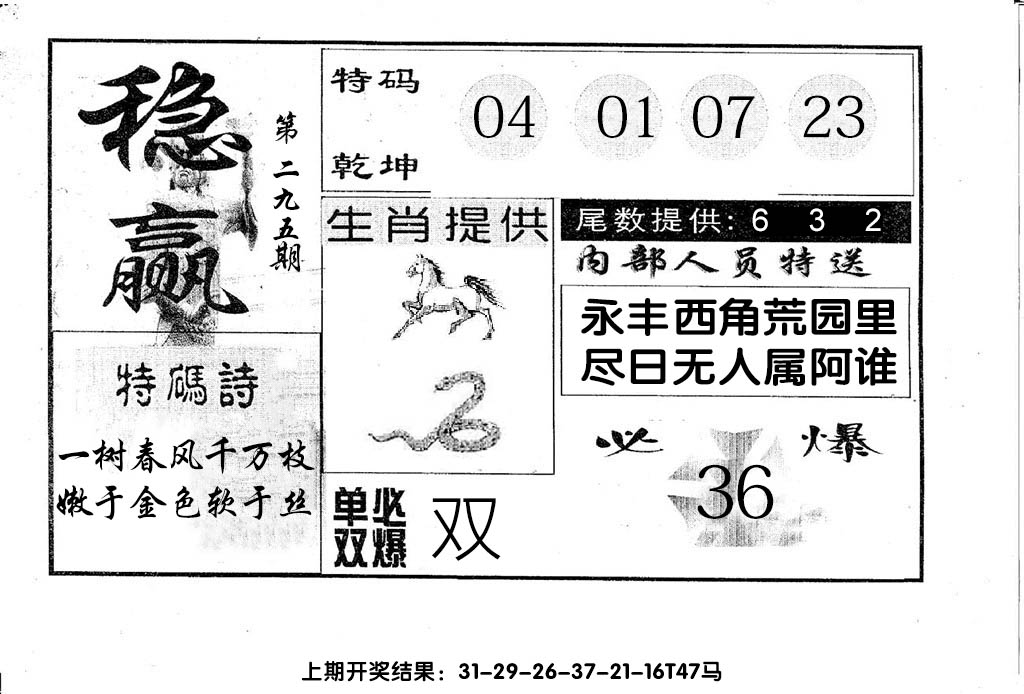 稳赢
第二九五期
特码
乾坤
04 01 07 23
生肖提供
尾数提供: 6 3 2
内部人员特送
永丰西角荒园里
尽日无人属阿谁
特碼詩
一树春风千万枝
嫩于金色软于丝
单双必爆
双
必爆
36
上期开奖结果：31-29-26-37-21-16T47马